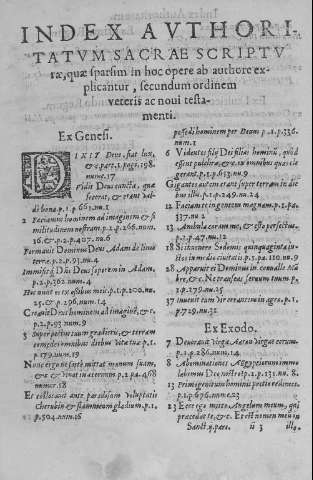 INDEX AVTHORI-
TATVM SACRAE SCRIPTV
ræ, quæ sparsim in hoc opere ab authore ex-
plicantur, secundum ordinem
veteris ac noui testa-
menti.
Ex Genesi.
DIXIT Deus, fiat lux,
& c. part. 1. pag. 198.
nume. 17
Vidit Deus cuncta, quæ
fecerat, & erant val-
de bona p. 1 p. 661. nu. 1
2 Faciamus hominem ad imaginem & si
militudinem nostram p. 1. p. 266. num.
16. & p. 2. p. 407. num. 6
Formauit Dominus Deus Adam de limo
terræ p. 2. p. 93. nu. 4
Immisit q; Dñs Deus soporem in Adam.
p. 2. p. 362 num. 4
Hoc nunc os ex ossibus meis. p. 1. p. 200. nu.
25. & p. 296. num. 14
Creauit Deus hominem ad imaginē, & c.
p. 2. p. 93 num. 9
3 Super pectus tuum gradieris, & terram
comedes omnibus diebus vitæ tuæ p. 1.
p. 179. num. 19
Nunc ergo ne forte mittat manum suam,
& c. & viuat in æternum p. 2 pa. 468
numer. 18
Et collocauit ante paradisum voluptatis
cherubin & flammeum gladium. p. 1.
p. 504. num. 16
posse di hominem per Deum p. 1. p. 336.
num. 1
6 Videntes filij Dei filias hominū, quòd
essent pulchræ, & c. ex omnibus quas ele
gerant. p. 1. p. 653. nu. 9
Gigantes autem erant super terram in die
bus illis. p. 1. p. 249. nu. 24
12 Faciam te in gentem magnam. p. 1. pa.
337. nu. 2
17 Ambula coram me, & esto perfectus.
p. 1. p. 47. nu. 12
18 Si fuerint Sodomis quinquaginta iu-
sti in medio ciuitatis p. 1. pa. 110. nu. 9
28 Apparuit Dominus in conualle Mã
bre, & c.
p. 1. p. 179. nu. 25
37
p. 729. nu. 31
Ex Exodo.
7 Deuorauit virga Aaron virgas eorum.
p. 1. p. 286. num. 14.
8 Abominationes Aegyptiorum immo
labimus Deo nostro p. 1. p. 131. nu. 8.
13 Primogenitum hominis pretio redimes.
p. 1. p. 676. num. 23
23 Ecce ego mitto Angelum meum, qui
præcedat te, & c. Et est nomen meum in
Sanct. ij. pars. ij 3 illo,